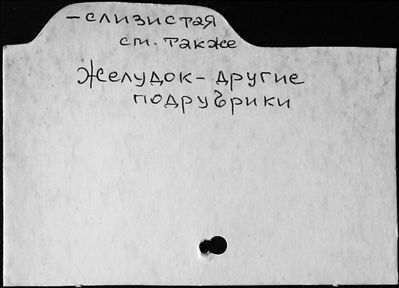 -слизистая
см. также
Желудок- другие
подрубрики